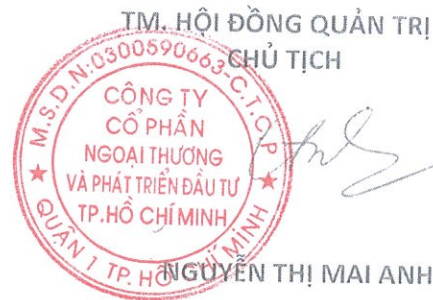 TM. HỘI ĐỒNG QUẢN TRỊ
CHỦ TỊCH
M.S.D.N:0300590663-C.T.C.P
CÔNG TY
CỔ PHẦN
NGOẠI THƯƠNG
VÀ PHÁT TRIỂN ĐẦU TƯ
TP.HỒ CHÍ MINH
QUẬN 1 TP. HỒ CHÍ MINH
NGUYỄN THỊ MAI ANH